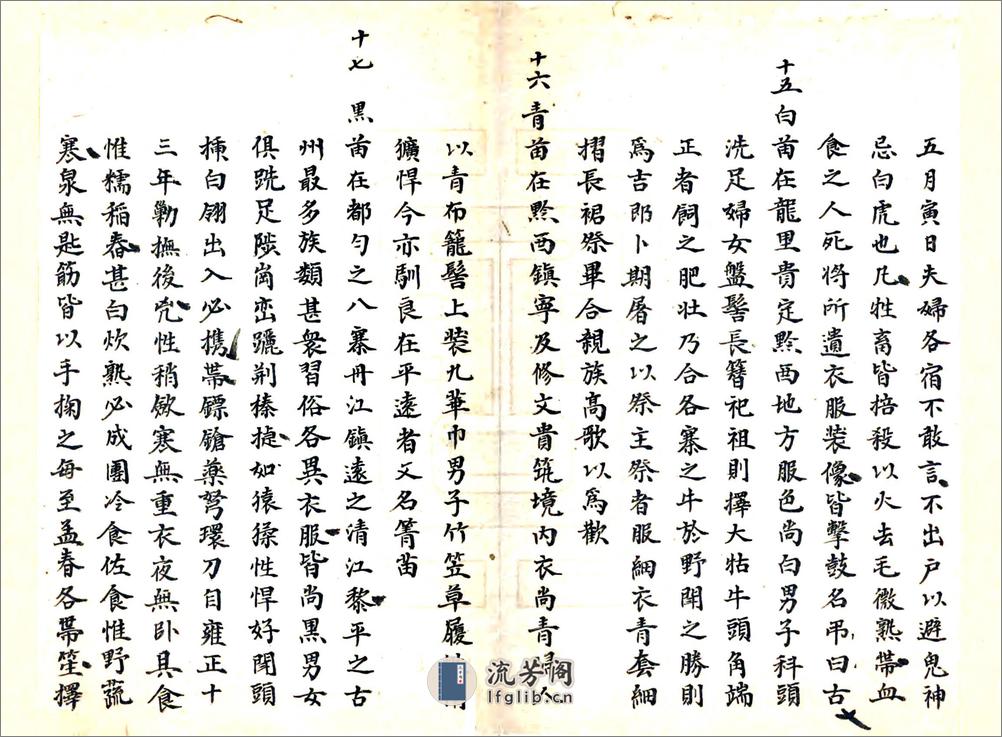 五月寅日夫婦各宿不敢言不出戸以避鬼神
忌白虎也凡牲畜皆掊殺以火去毛微熟帶血
食之人死將所遺衣服装像皆擊鼓名弔曰古
十五白苗在龍里貴定黔西地方服色尚白男子科頭
洗足婦女盤髻長簪祀祖則擇大牯牛頭角端
正者飼之肥壮乃合各寨之牛於野閗之勝則
為吉郎卜期屠之以祭主祭者服細衣青套細
摺長裙祭畢合親族高歌以為歡
十六青苗在黔西鎮寧及修文貴筑境内衣尚青婦人
以青布籠髻上装九華巾男子竹笠草履
獷悍今亦馴良在平遠者又名箐苗
十七黒苗在都匀之八寨丹江鎮遠之清江黎平之古
州最多族類甚衆習俗各異衣服皆尚黒男女
俱跣足陟崗巒躧荆榛捷如猿猱性悍好閗頭
挿白翎出入必携帶鏢鎗藥弩環刀自雍正十
三年勦撫後兇性稍斂寒無重衣夜無卧具食
惟糯稻舂甚白炊熟必成團冷食佐食惟野蔬
寒泉無匙筯皆以手掬之每至孟春各帶笙擇
流芳阁
lfglib.cn